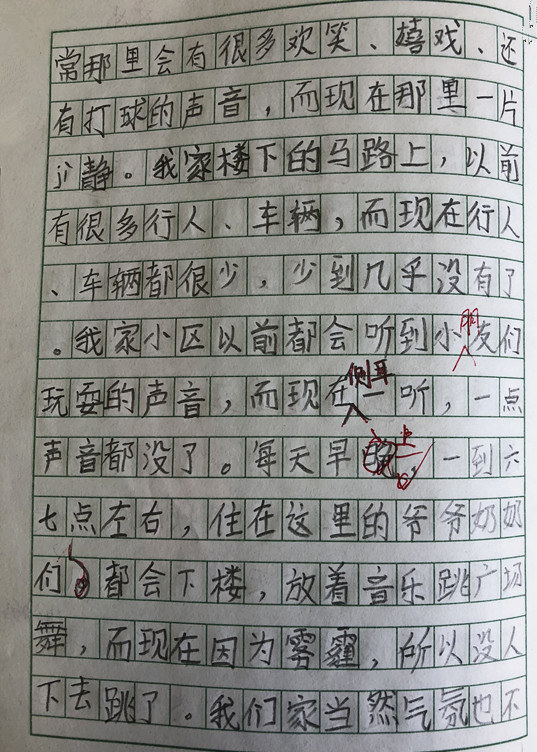 常那里会有很多欢笑、嬉戏、还
有打球的声音，而现在那里一片
静。我家楼下的马路上，以前
有很多行人、车辆，而现在行人
、车辆都很少，少到几乎没有了
。我家小区以前都会听到小朋友们
玩耍的声音，而现在侧耳一听，一点
声音都没了。每天早晚上，一到六
七点左右，住在这里的爷爷奶奶
们都会下楼，放着音乐跳广场
舞，而现在因为雾霾，所以没人
下去跳了。我们家当然气氛也不